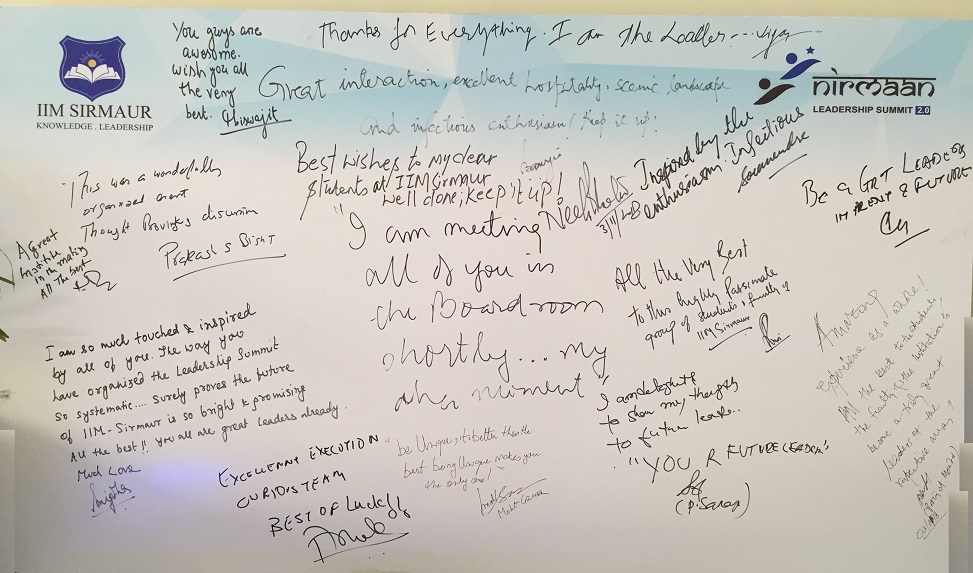 IIM SIRMAUR
KNOWLEDGE . LEADERSHIP
You guys are
awesome.
wish you all
the very
best.
Biswajit
Thanks for Everything. I am The Leader... Vijay
nirmaan
LEADERSHIP SUMMIT 2.0
Great interaction, excellent hospitality, scenic landscape
and infectious enthusiasm! Keep it up!
Best wishes to my dear
students at IIM Sirmaur
Well done; keep it up!
Inspired by the
Infectious
enthusiasm.
3/11/
BE a GRT LEADERS
IN FRONT & FUTURE
"This was a wonderfully
organized event
Thought Provoking discussion
Prakash S Bisht
A great
institute
in the making
All The best
"I am meeting
all of you in
the Boardroom
shortly... my
aha moment"
All the Very Best
to this highly Passionate
group of students & faculty of
IIM Sirmaur
I am so much touched & inspired
by all of you. The way you
have organized the Leadership Summit
so systematic.... surely proves the future
of IIM-Sirmaur is so bright & promising
All the best!! You all are great leaders already.
Much Love
EXCELLENT EXECUTION
CURIOUS TEAM
BEST OF Luck!!
"be Unique, its better than the
best being Unique makes you
the only one!"
I am delighted
to share my thoughts
to future leaders..
"YOU R FUTURE LEADERS"
(P. Sarap)
Amazing
experience as a whole!
All the best to the students
the faculty & the institution to
become a truly great
leaders of the